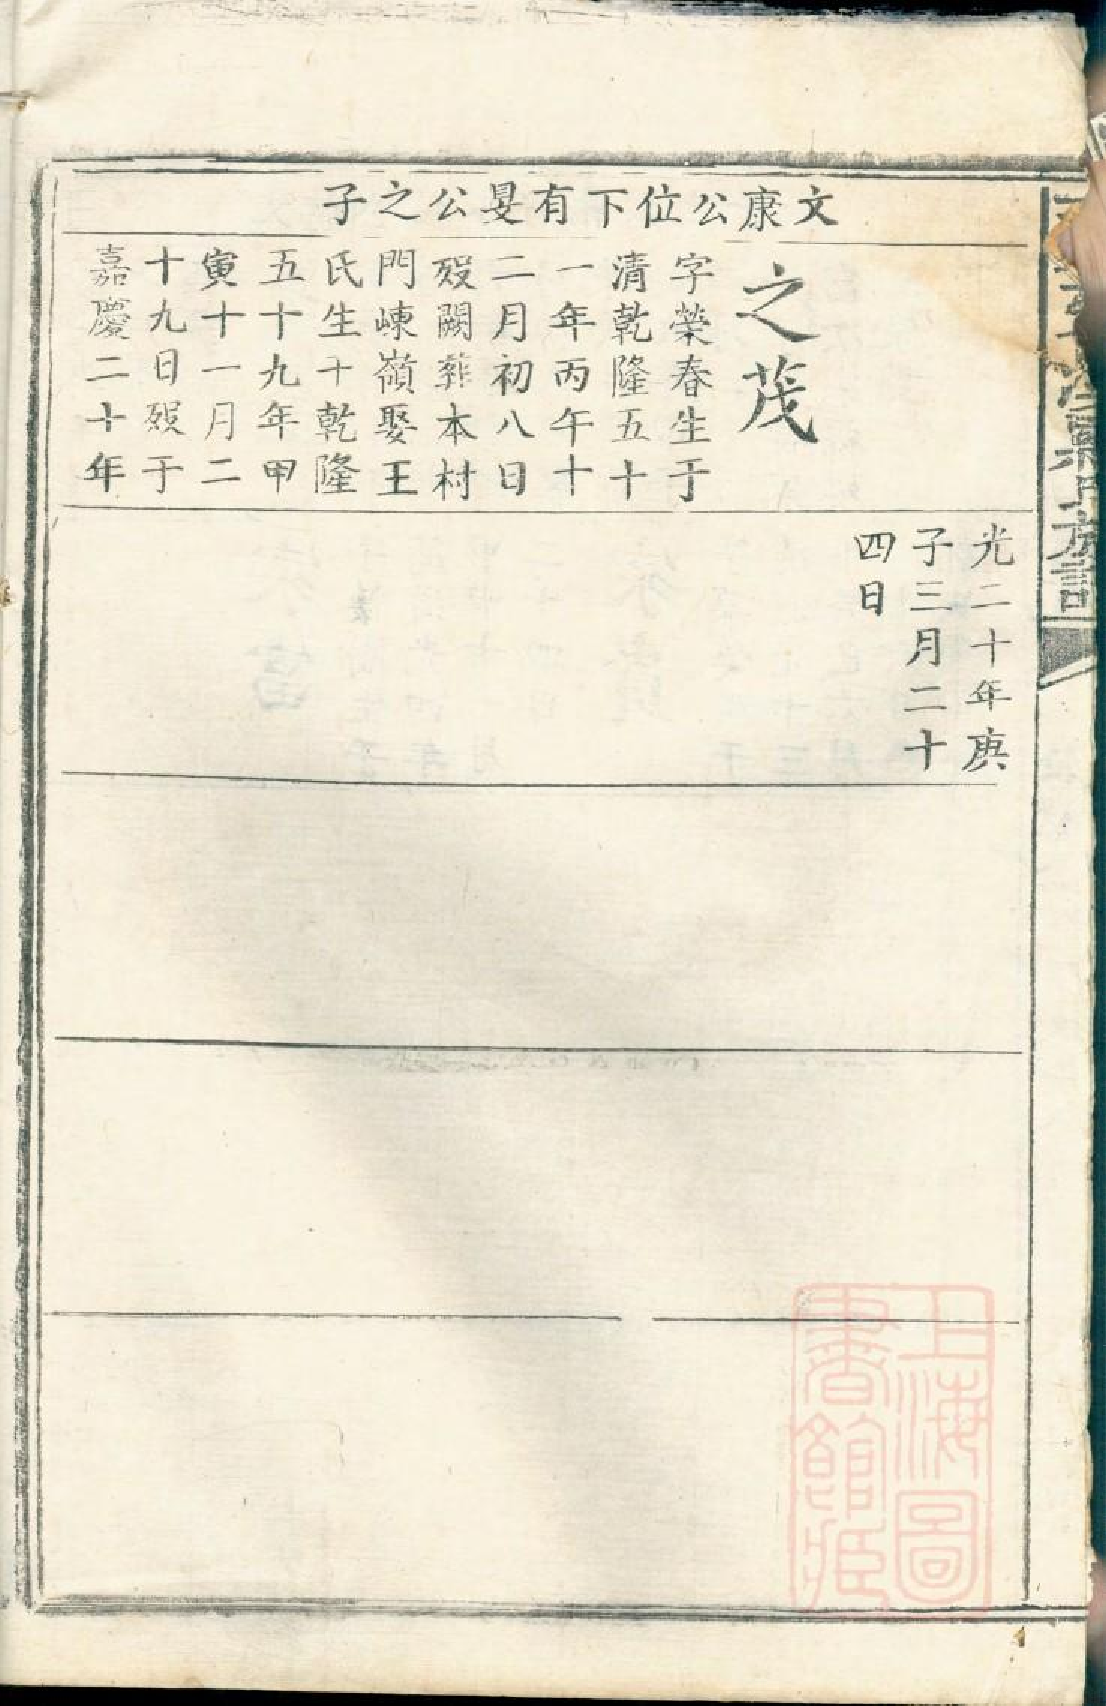 文康公位下有旻公之子
之茂
字榮春生于
清乾隆五十
一年丙午十
二月初八日
歿闕葬本村
門崠嶺娶王
氏生十乾隆
五十九年甲
寅十一月二
十九日歿于
嘉慶二十年
光二十年庚
子三月二十
四日
氏族譜
上海圖
書館藏